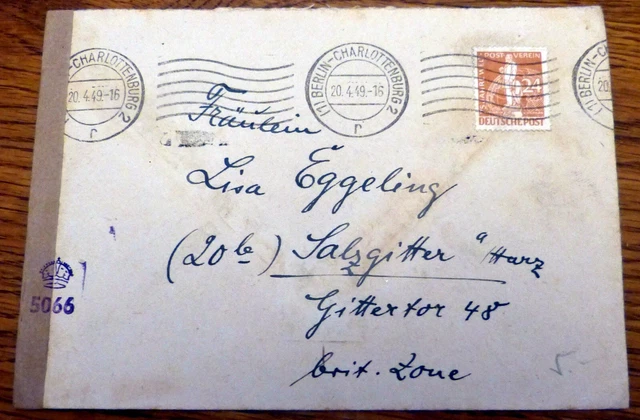 (1) BERLIN-CHARLOTTENBURG 2
20.4.49.-16
r
(1) BERLIN-CHARLOTTENBURG 2
20.4.49.-16
r
POSTVEREIN
24
DEUTSCHE POST
(1) B
20
Fräulein
Lisa Eggeling
(20b) Salzgitter a/Harz
Gittertor 48
brit. Zone
5066
5.-